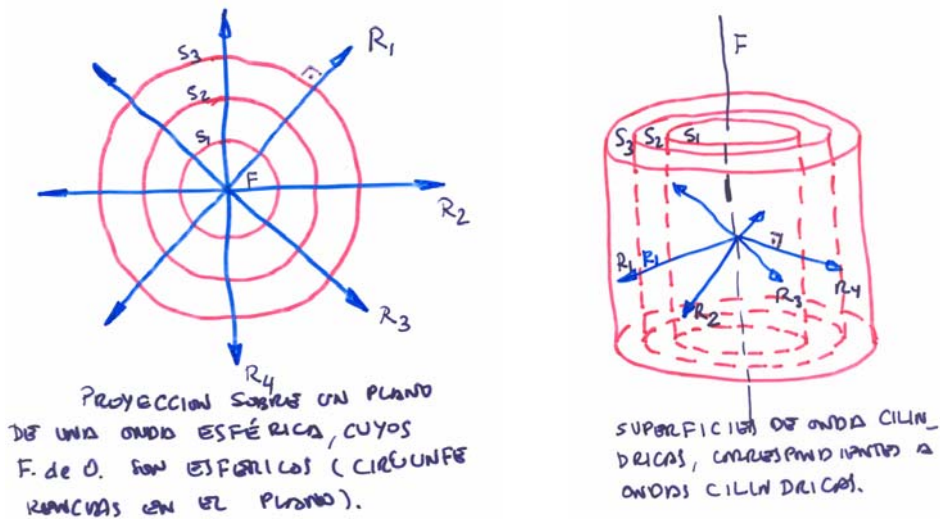 S3
S2
S1
F
R1
R2
R3
R4
PROYECCION SOBRE UN PLANO
DE UNA ONDA ESFÉRICA, CUYOS
F. de O. SON ESFERICOS (CIRCUNFE
RENCIAS EN EL PLANO).
F
S3 S2 S1
R1 R1
R2
R3
R4
SUPERFICIES DE ONDA CILIN_
DRICAS, CORRESPONDIENTES A
ONDAS CILINDRICAS.